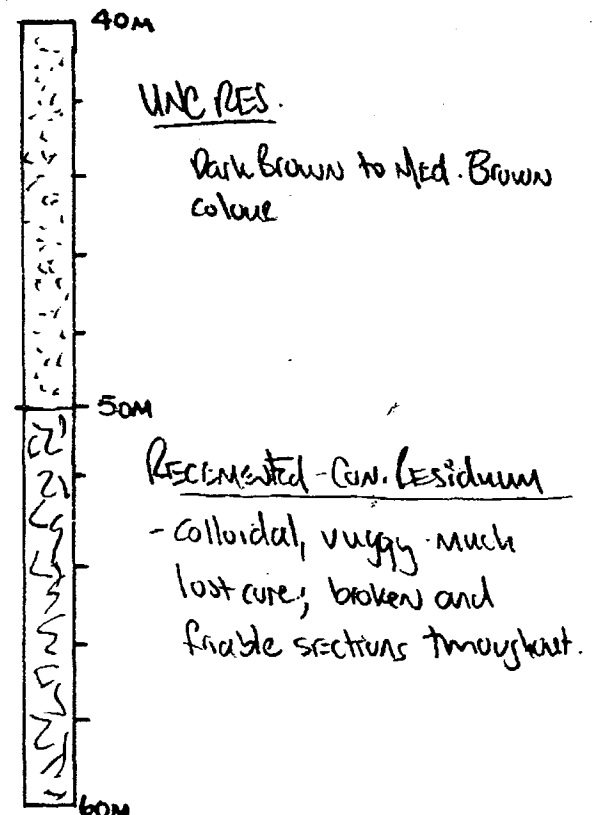 40M
UNC RES.
Dark Brown to Med. Brown
colour
50M
RECEMENTED - CON. RESiduum
- colloidal, vuggy much
lost core; broken and
friable sections throughout.
60M